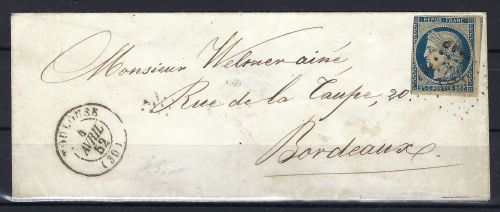 REPUB. FRANC.
Monsieur Welsner aîné
Rue de la Taupe, 20.
Bordeaux
TOULOUSE
4
AVRIL
52
(30)